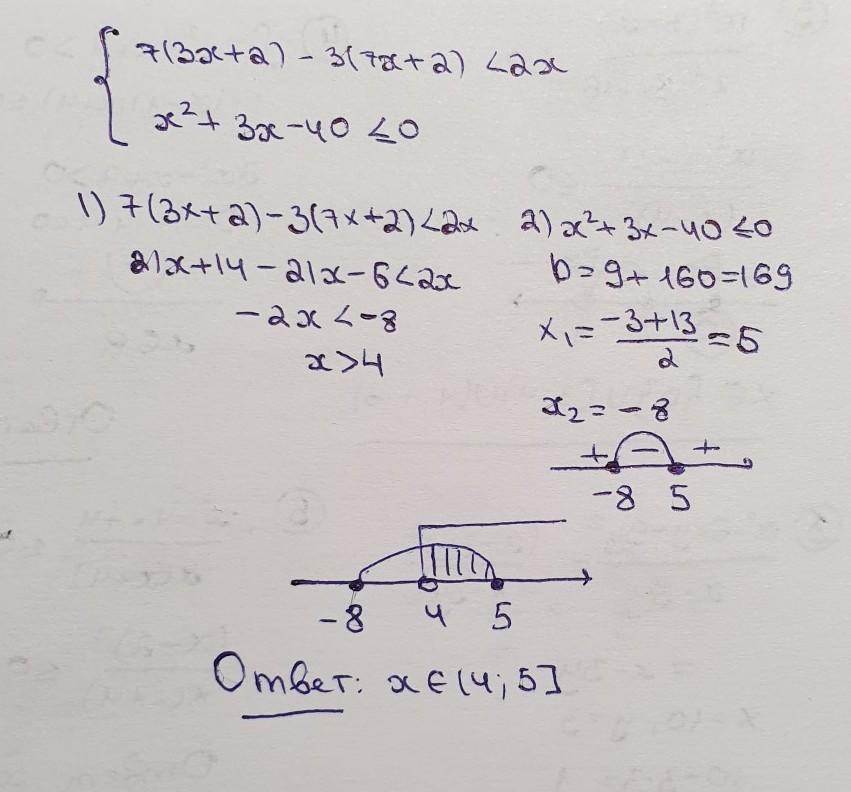 7(3x+2) - 3(7x+2) <2x
x²+ 3x-40 ≤0
1) 7(3x+2)-3(7x+2)<2x
21x+14-21x-6<2x
-2x <-8
x>4
2) x²+3x-40≤0
D=9+160=169
x₁= (-3+13)/2 = 5
x₂= -8
+ - +
-8 5
-8 4 5
Ответ: x∈(4; 5]